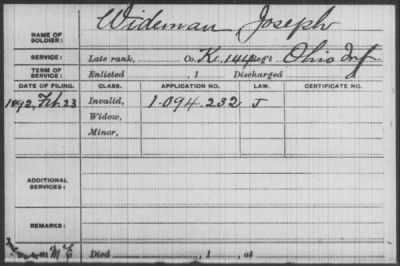 NAME OF SOLDIER: Wideman, Joseph
SERVICE: Late rank, Co. K, 144 Reg't Ohio Inf.
TERM OF SERVICE: Enlisted , 1 Discharged , 1
DATE OF FILING. CLASS. APPLICATION NO. LAW. CERTIFICATE NO.
1892, Feb. 23 Invalid, 1-094.232 J
Widow,
Minor,
ADDITIONAL SERVICES:
REMARKS:
Died , 1 , at